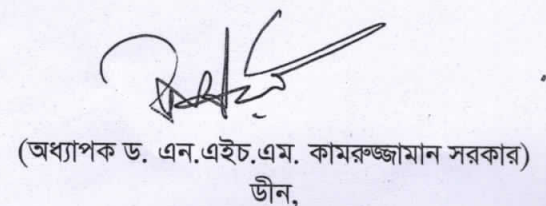 (অধ্যাপক ড. এন.এইচ.এম. কামরুজ্জামান সরকার)
ডীন,